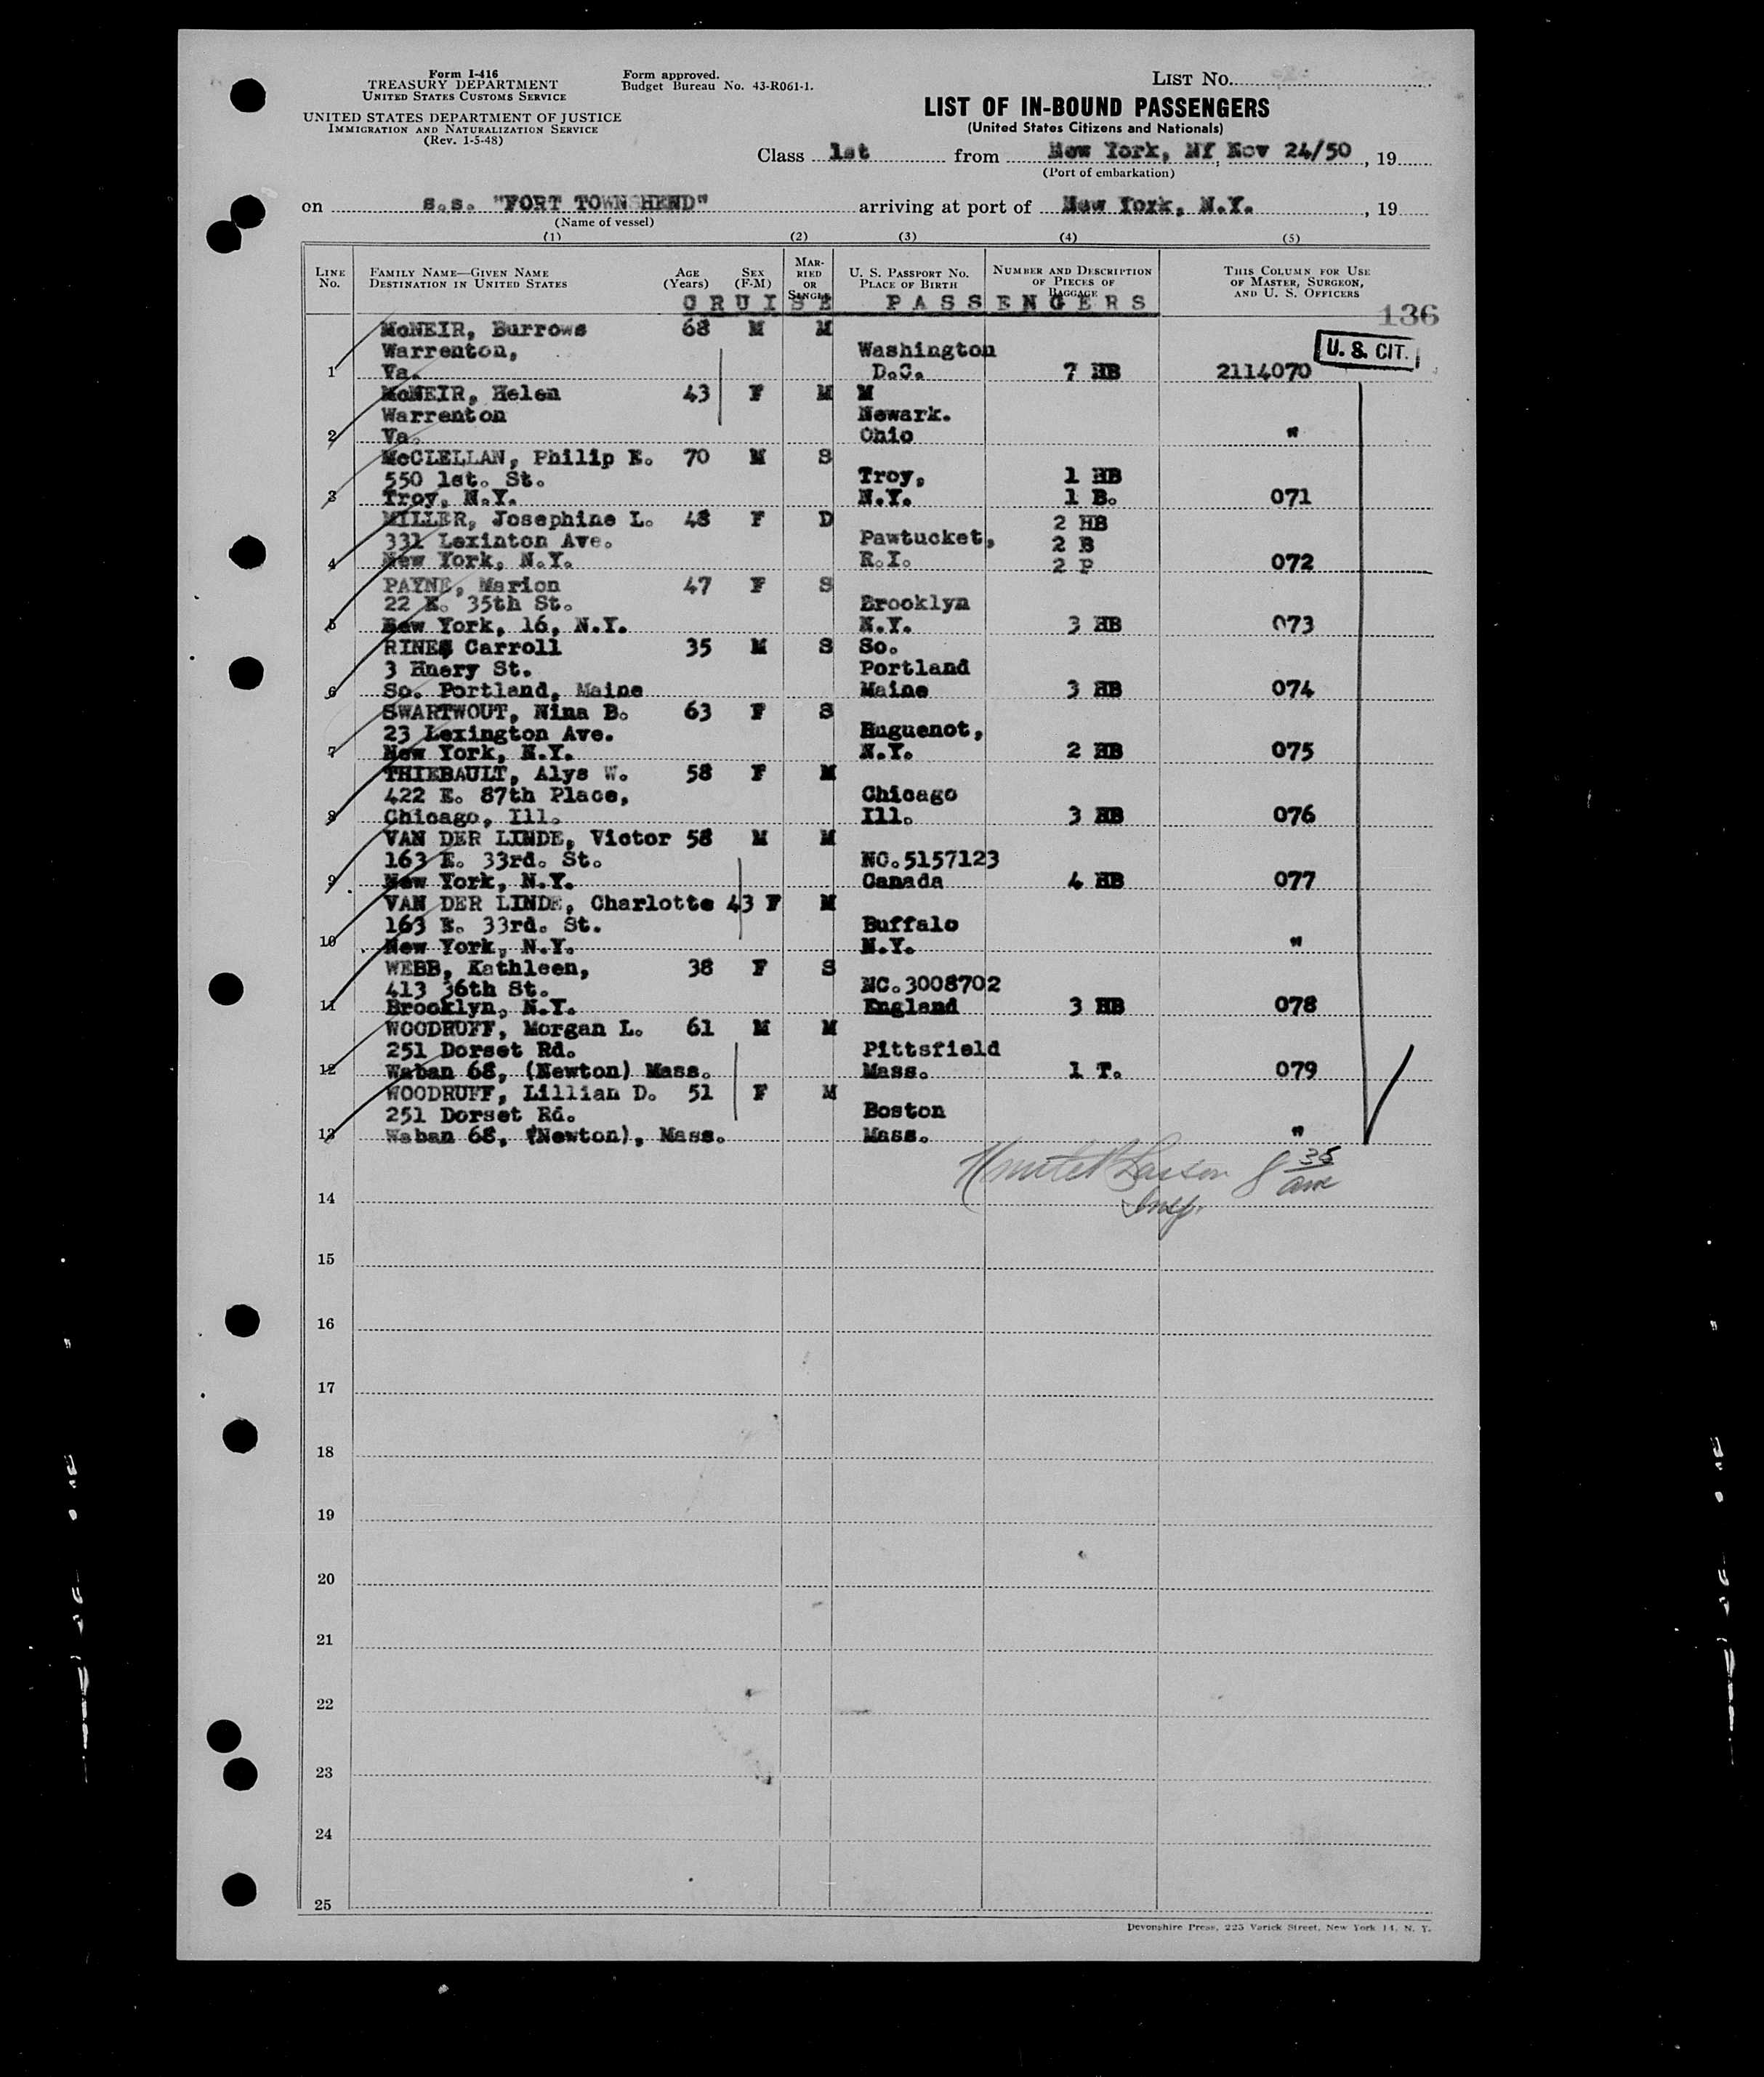 Form I-416
TREASURY DEPARTMENT
UNITED STATES CUSTOMS SERVICE
UNITED STATES DEPARTMENT OF JUSTICE
IMMIGRATION AND NATURALIZATION SERVICE
(Rev. 1-5-48)
Form approved.
Budget Bureau No. 43-R061-1.
LIST NO.
LIST OF IN-BOUND PASSENGERS
(United States Citizens and Nationals)
Class 1st from New York, NY, Nov 24/50, 19
(Port of embarkation)
on s.s. "FORT TOWNSHEND" arriving at port of New York, N.Y., 19
(Name of vessel)
(1) (2) (3) (4) (5)
LINE NO.
FAMILY NAME—GIVEN NAME
DESTINATION IN UNITED STATES
AGE (Years)
SEX (F-M)
MARRIED OR SINGLE
U. S. PASSPORT NO.
PLACE OF BIRTH
NUMBER AND DESCRIPTION OF PIECES OF BAGGAGE
THIS COLUMN FOR USE OF MASTER, SURGEON, AND U. S. OFFICERS
CRUISE PASSENGERS
136
U. S. CIT.
McNEIR, Burrows 68 M M
Warrenton, Washington
1 Va. D.C. 7 HB 2114070
McNEIR, Helen 43 F M M
Warrenton Newark.
2 Va. Ohio "
McCLELLAN, Philip E. 70 M S
550 1st. St. Troy, 1 HB
3 Troy, N.Y. N.Y. 1 B. 071
MILLER, Josephine L. 48 F D 2 HB
331 Lexinton Ave. Pawtucket, 2 B
4 New York, N.Y. R.I. 2 P 072
PAYNE, Marion 47 F S
22 E. 35th St. Brooklyn
5 New York, 16, N.Y. N.Y. 3 HB 073
RINES Carroll 35 M S So.
3 Hnery St. Portland
6 So. Portland, Maine Maine 3 HB 074
SWARTWOUT, Nina B. 63 F S
23 Lexington Ave. Huguenot,
7 New York, N.Y. N.Y. 2 HB 075
THIEBAULT, Alys W. 58 F M
422 E. 87th Place, Chicago
8 Chicago, Ill. Ill. 3 HB 076
VAN DER LINDE, Victor 58 M M
163 E. 33rd. St. NC.5157123
9 New York, N.Y. Canada 4 HB 077
VAN DER LINDE, Charlotte 43 F M
163 E. 33rd. St. Buffalo
10 New York, N.Y. N.Y. "
WEBB, Kathleen, 38 F S
413 36th St. NC.3008702
11 Brooklyn, N.Y. England 3 HB 078
WOODRUFF, Morgan L. 61 M M
251 Dorset Rd. Pittsfield
12 Waban 68, (Newton) Mass. Mass. 1 T. 079
WOODRUFF, Lillian D. 51 F M
251 Dorset Rd. Boston
13 Waban 68, (Newton), Mass. Mass. "
8 35 am
Insp.
14
15
16
17
18
19
20
21
22
23
24
25
Devonshire Press, 225 Varick Street, New York 14, N. Y.